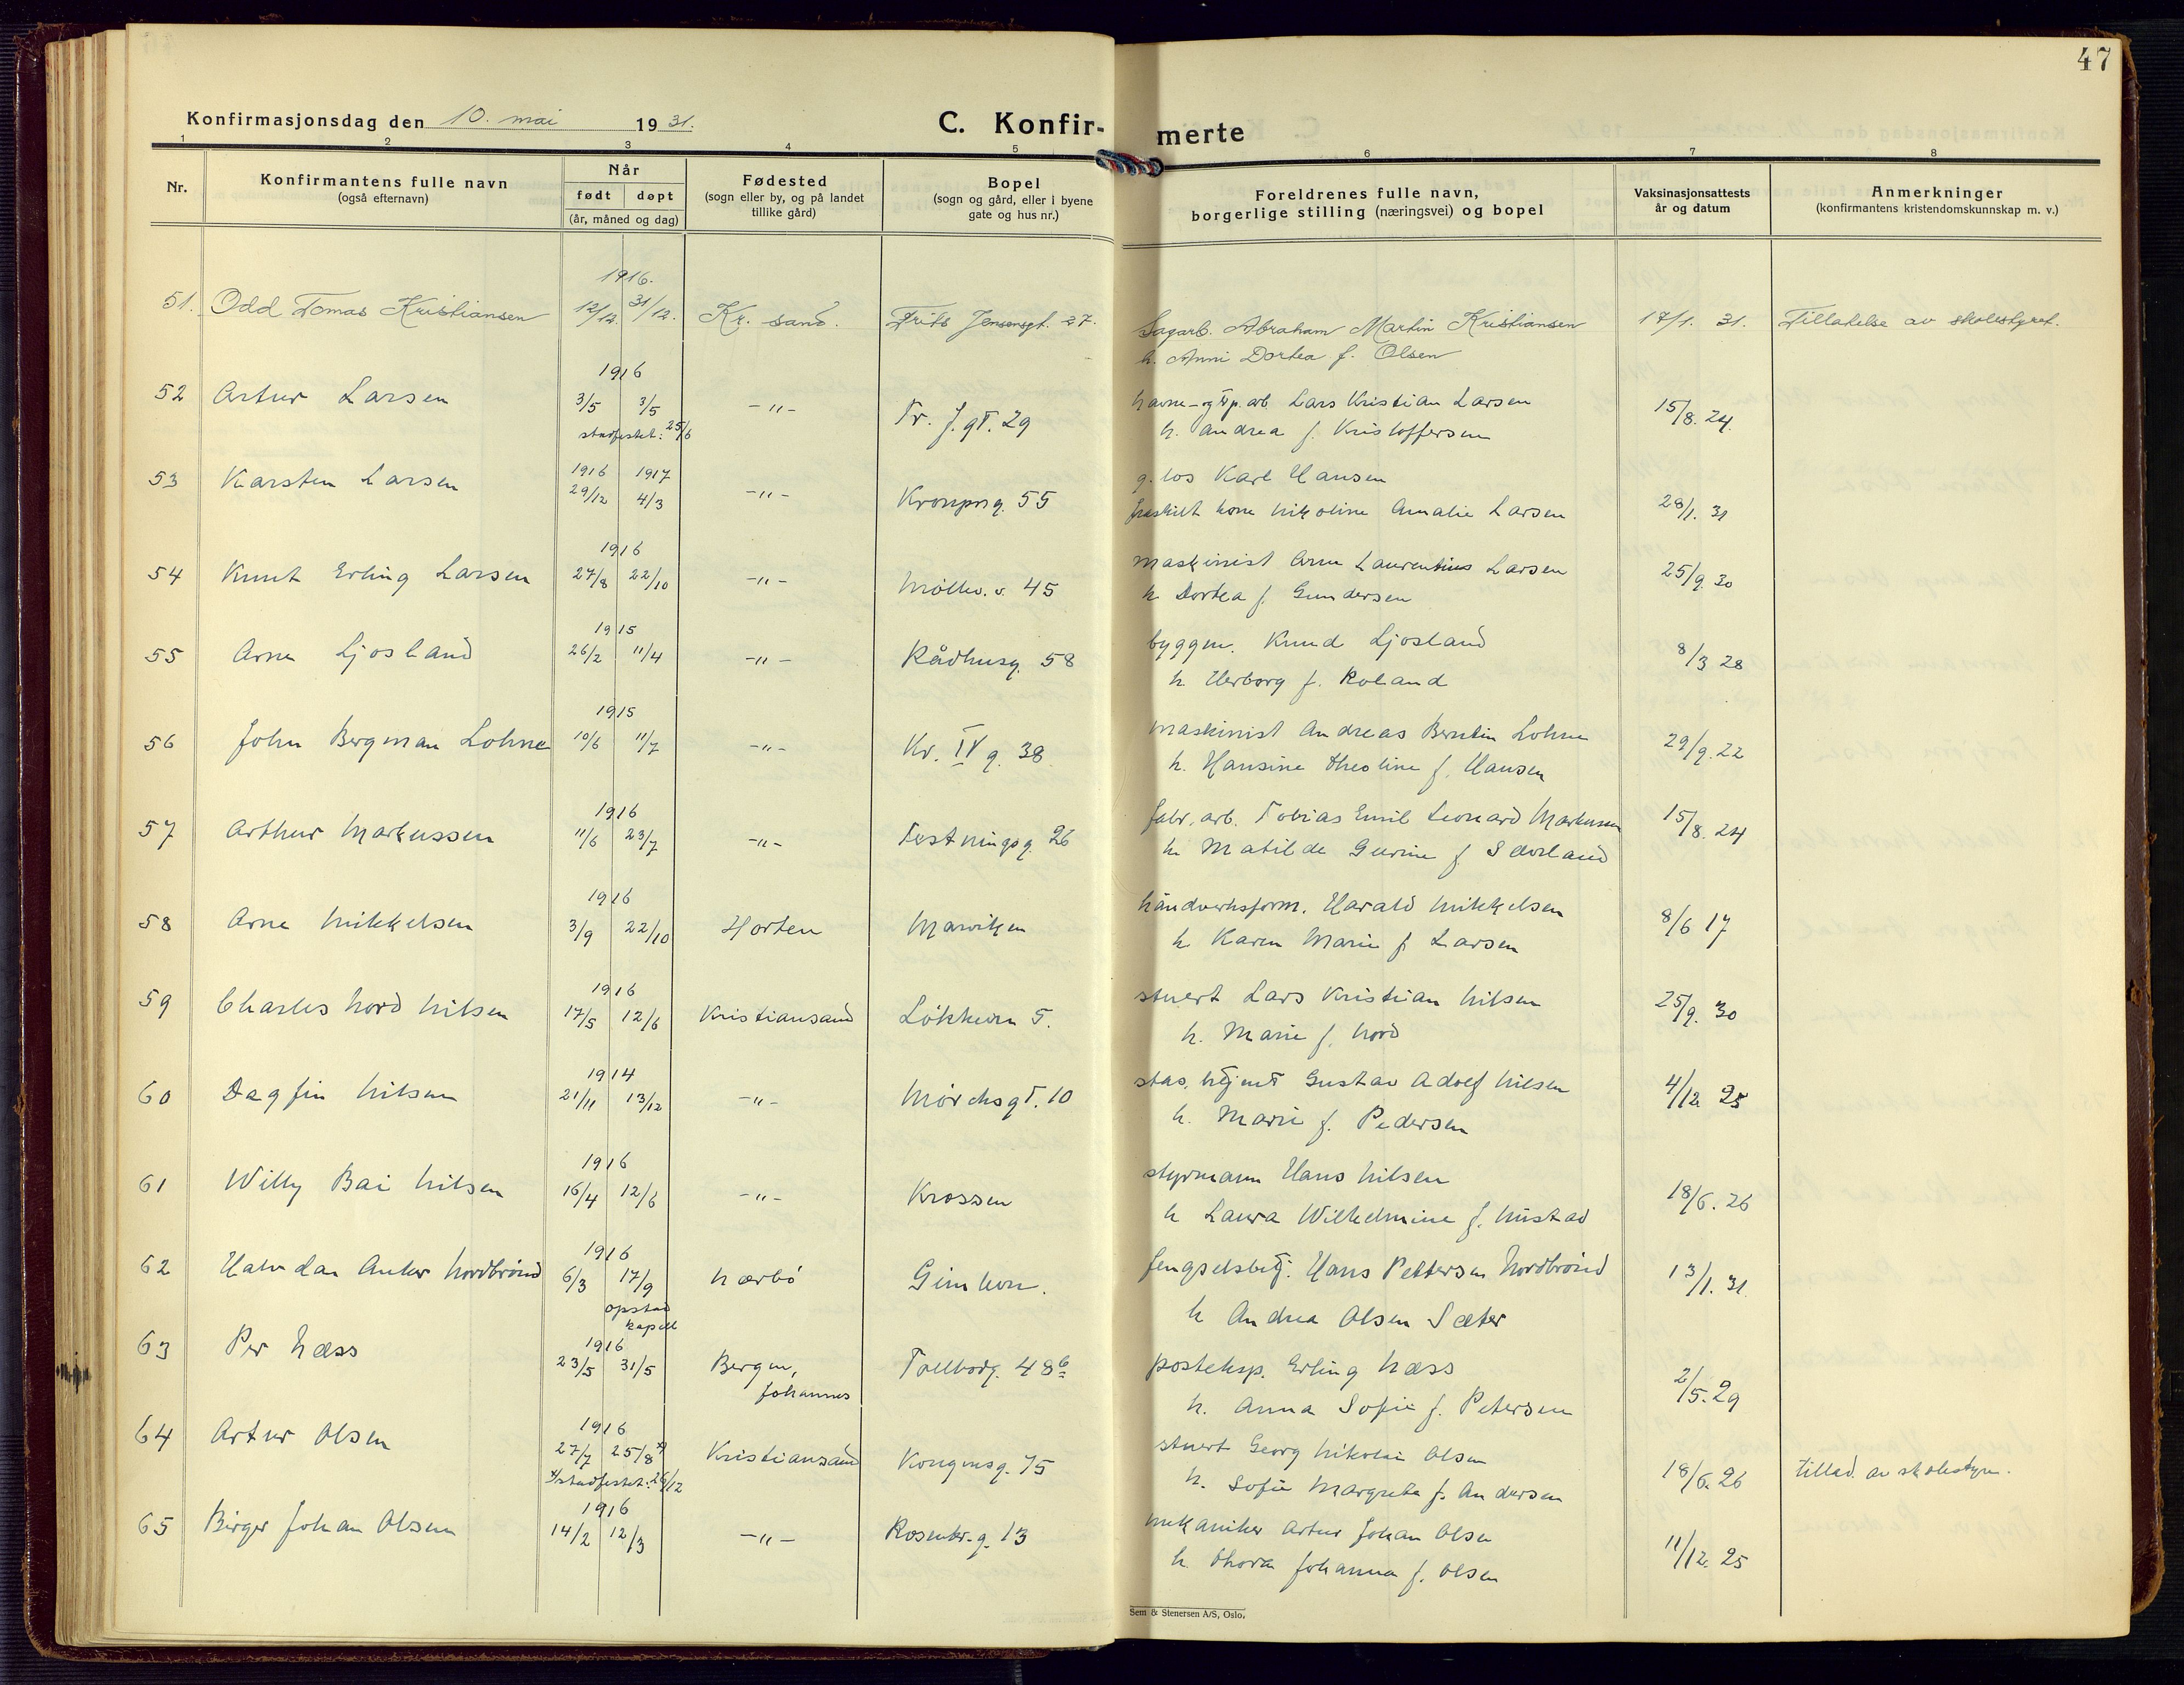 47
Konfirmasjonsdag den 10. mai 1931. C. Konfir- merte
1 2 3 4 5 6 7 8
Nr. Konfirmantens fulle navn (også efternavn) Når født døpt (år, måned og dag) Fødested (sogn eller by, og på landet tillike gård) Bopel (sogn og gård, eller i byene gate og hus nr.) Foreldrenes fulle navn, borgerlige stilling (næringsvei) og bopel Vaksinasjonsattests år og datum Anmerkninger (konfirmantens kristendomskunnskap m. v.)
1916.
51. Odd Tomas Kristiansen 12/12. 31/12. Kr. sand. Frits Jensensgt. 27. Sagarb. Abraham Martin Kristiansen 17/1. 31. Tillatelse av skolestyret.
h. Anni Dortea f. Olsen
1916
52 Artur Larsen 3/5 3/5 -"- Tr. f. gt. 29 havne- og arb. Lars Kristian Larsen 15/8. 24.
stadfestet: 25/6 h. Andrea f. Kristoffersen
53 Karsten Larsen 1916 1917 g. los Karl Hansen
29/12 4/3 -"- Kronprg. 55 fraskilt kone Nikoline Amalie Larsen 28/1. 31
1916
54 Knut Erling Larsen 27/8 22/10 -"- Møllev. v. 45 maskinist Arne Laurentius Larsen 25/9. 30
h Dortea f. Gundersen
1915
55 Arne Ljosland 26/2 11/4 -"- Rådhusg. 58 byggm. Knud Ljosland 8/3 28
h. Herborg f. Roland
1915
56 John Bergman Lohne 10/6 11/7 -"- Kr. IV g. 38 maskinist Andreas Berntin Lohne 29/9. 22
h. Hansine Theoline f. Hansen
1916
57 Arthur Markussen 11/6 23/7 -"- Festningsg. 26 fabr. arb. Tobias Emil Leonard Markussen 15/8. 24
h. Matilde Gurine f. Sørland
1916
58 Arne Mikkelsen 3/9 22/10 Horten Marviken håndverksform. Harald Mikkelsen 8/6 17
h. Karen Marie f. Larsen
1916
59 Charles Nord Nilsen 17/5 12/6 Kristiansand Løkkeveien 5. stuert Lars Kristian Nilsen 25/9. 30
h. Marie f. Nord
1914
60 Dagfin Nilsen 21/11 13/12 -"- Mørchsgt. 10 stas. betjent Gustav Adolf Nilsen 4/12 25
h. Marie f. Pedersen
1916
61 Willy Bai Nilsen 16/4 12/6 -"- Krossen styrmann Hans Nilsen 18/6. 26
h Laura Wilhelmine f. Mustad
1916
62 Halvdan Anker Nordbrønd 6/3 17/9 Nærbø Gimlevn. fengselsbetj. Hans Pettersen Nordbrønd 13/1. 31
opstad kapell h Andrea Olsen Sæter
1916
63 Per Næss 23/5 31/5 Bergen, Johannes Tollbodg. 48 b posteksp. Erling Næss 2/5. 29
h. Anna Sofie f. Petersen
1916
64 Artur Olsen 27/7 25/8 x) Kristiansand Kongensg. 75 stuert Georg Nikolai Olsen 18/6. 26 tillad. av skolestyre.
x) stadfestet: 26/12 h. Sofie Margrete f. Andersen
1916
65 Birger Johan Olsen 14/2 12/3 -"- Rosenkr. g. 13 mekaniker Artur Johan Olsen 11/12. 25
h. Thora Johanna f. Olsen
Sem & Stenersen A/S, Oslo.